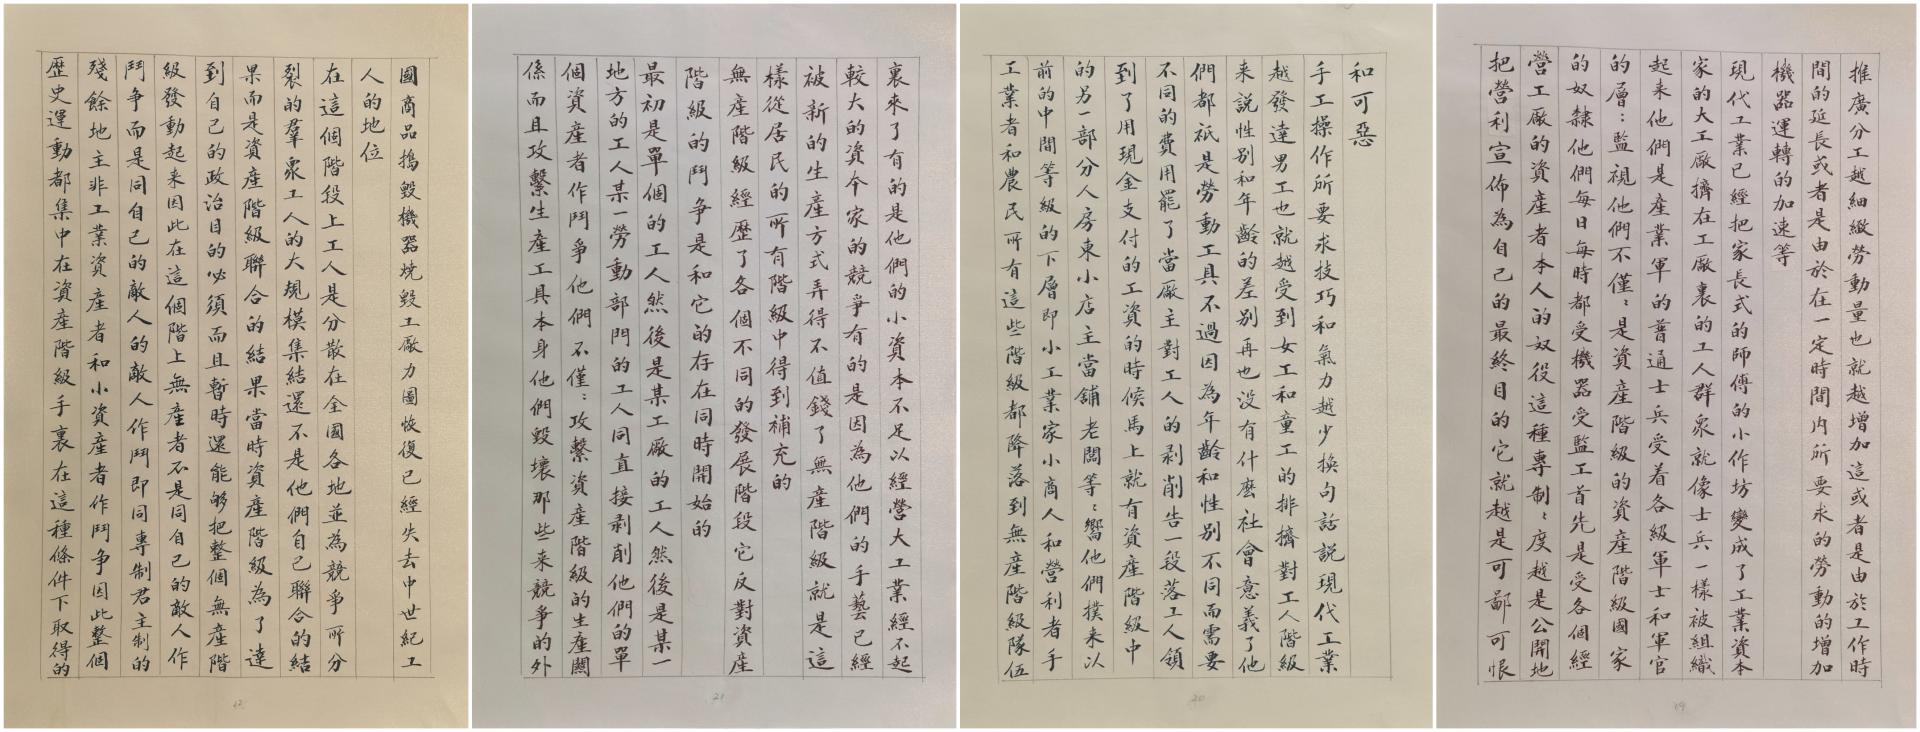 推廣分工越細緻勞動量也就越增加這或者是由於工作時
間的延長或者是由於在一定時間内所要求的勞動的增加
機器運轉的加速等
現代工業已經把家長式的師傅的小作坊變成了工業資本
家的大工廠擠在工廠裏的工人群衆就像士兵一樣被組織
起来他們是產業軍的普通士兵受着各級軍士和軍官
的層：監視他們不僅：是資產階級的資產階級國家
的奴隸他們每日每時都受機器受監工首先是受各個經
營工廠的資產者本人的奴役這種專制：度越是公開地
把營利宣佈為自己的最終目的它就越是可鄙可恨
19
和可惡
手工操作所要求技巧和氣力越少換句話説現代工業
越發達男工也就越受到女工和童工的排擠對工人階級
来説性别和年齡的差别再也没有什麽社會意義了他
們都祇是勞動工具不過因為年齡和性别不同而需要
不同的費用罷了當廠主對工人的剥削告一段落工人領
到了用現金支付的工資的時候馬上就有資產階級中
的另一部分人房東小店主當舖老闆等：嚮他們撲来以
前的中間等級的下層即小工業家小商人和營利者手
工業者和農民所有這些階級都降落到無產階級隊伍
20
裏來了有的是他們的小資本不足以經營大工業經不起
較大的資今家的競爭有的是因為他們的手藝已經
被新的生產方式弄得不值錢了無產階級就是這
樣從居民的所有階級中得到補充的
無產階級經歷了各個不同的發展階段它反對資產
階級的鬥争是和它的存在同時開始的
最初是單個的工人然後是某工廠的工人然後是某一
地方的工人某一勞動部門的工人同直接剥削他們的單
個資產者作鬥爭他們不僅：攻繫資產階級的生產闗
係而且攻繫生產工具本身他們毀壞那些来競爭的外
21
國商品搗毀機器焼毀工廠力圖恢復已經失去中世紀工
人的地位
在這個階段上工人是分散在全國各地並為競争所分
裂的羣衆工人的大規模集結還不是他們自己聯合的結
果而是資產階級聯合的結果當時資產階級為了達
到自己的政治目的必須而且暫時還能够把整個無產階
級發動起来因此在這個階上無產者不是同自己的敵人作
鬥争而是同自己的敵人的敵人作鬥即同專制君主制的
殘餘地主非工業資產者和小資產者作鬥争因此整個
歷史運動都集中在資產階級手裏在這種條件下取得的